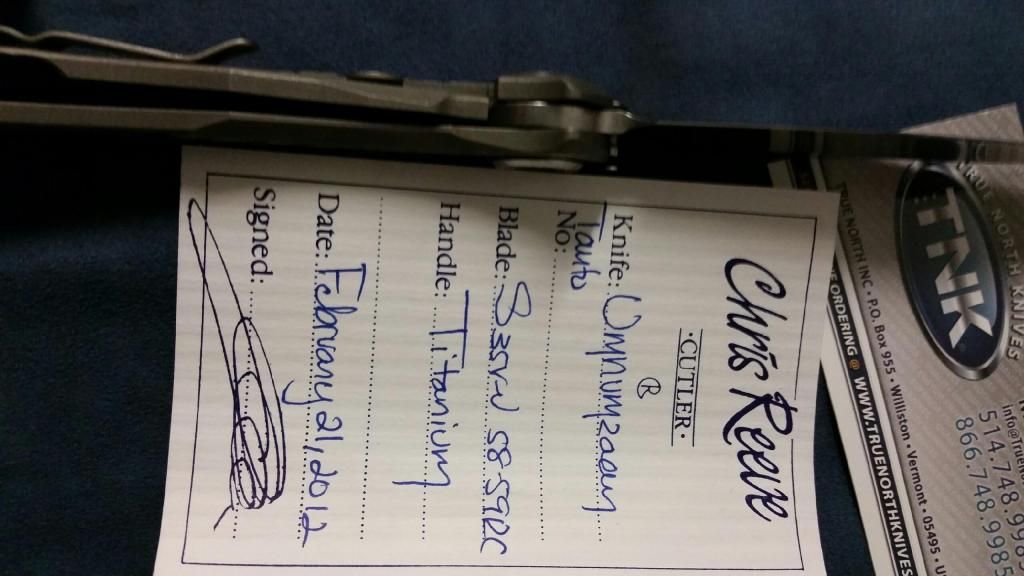 Chris Reeve
·CUTLER·
Knife: Umnumzaan ®
Tanto
No:
Blade: S35VN 58-59RC
Handle: Titanium
Date: February 21, 2012
Signed:
TRUE NORTH KNIVES
TNK
514.748.998
866.748.9985
TRUE NORTH INC • P.O. Box 955 • Williston • Vermont • 05495 •
ORDERING @ WWW.TRUENORTHKNIVES